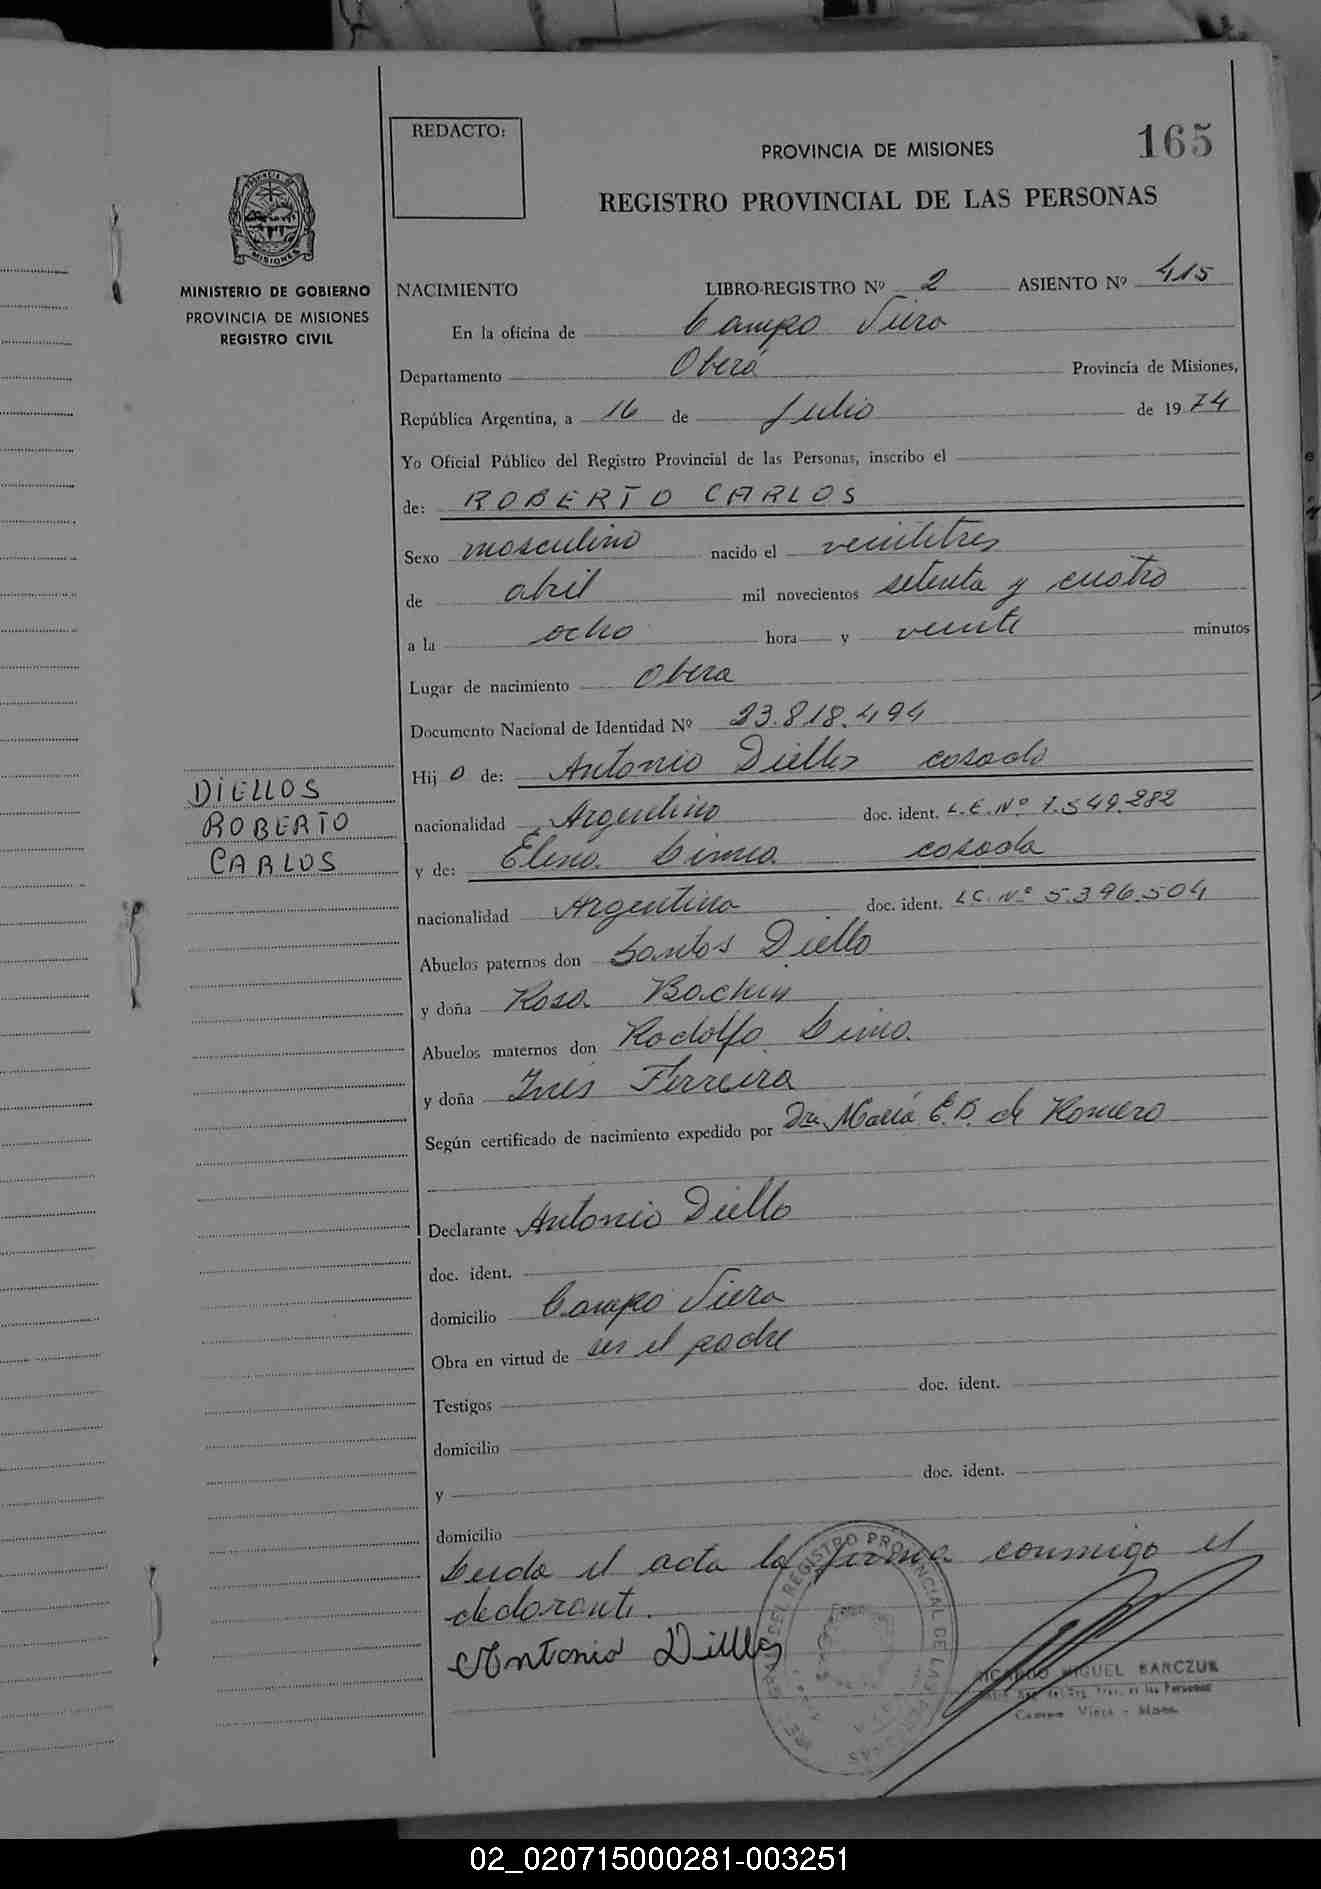 REDACTO:
165
PROVINCIA DE MISIONES
REGISTRO PROVINCIAL DE LAS PERSONAS
MISIONES
MINISTERIO DE GOBIERNO
PROVINCIA DE MISIONES
REGISTRO CIVIL
NACIMIENTO LIBRO-REGISTRO Nº 2 ASIENTO Nº 415
En la oficina de Campo Viera
Departamento Oberá Provincia de Misiones,
República Argentina, a 16 de Julio de 1974
Yo Oficial Público del Registro Provincial de las Personas, inscribo el
de: ROBERTO CARLOS
Sexo masculino nacido el veintitres
de abril mil novecientos setenta y cuatro
a la ocho hora y veinte minutos
Lugar de nacimiento Obera
Documento Nacional de Identidad Nº 23.818.494
Hijo de: Antonio Diellos casado
DIELLOS
ROBERTO
CARLOS
nacionalidad Argentino doc. ident. L.E.Nº 7.549.282
y de: Elena casada
nacionalidad Argentina doc. ident. L.C.Nº 5.396.504
Abuelos paternos don Santos Diello
y doña Rosa
Abuelos maternos don Rodolfo
y doña Inés Ferreira
Según certificado de nacimiento expedido por Dra. María E.B. de Romero
Declarante Antonio Diello
doc. ident.
domicilio Campo Viera
Obra en virtud de ser el padre
Testigos doc. ident.
domicilio
y doc. ident.
domicilio
Leida el acta la firma conmigo el
declarante.
Antonio Diellos
REGISTRO PROVINCIAL DE LAS PERSONAS
RICARDO MIGUEL BARCZUK
de las Personas
Campo Viera - Mnes.
02_020715000281-003251